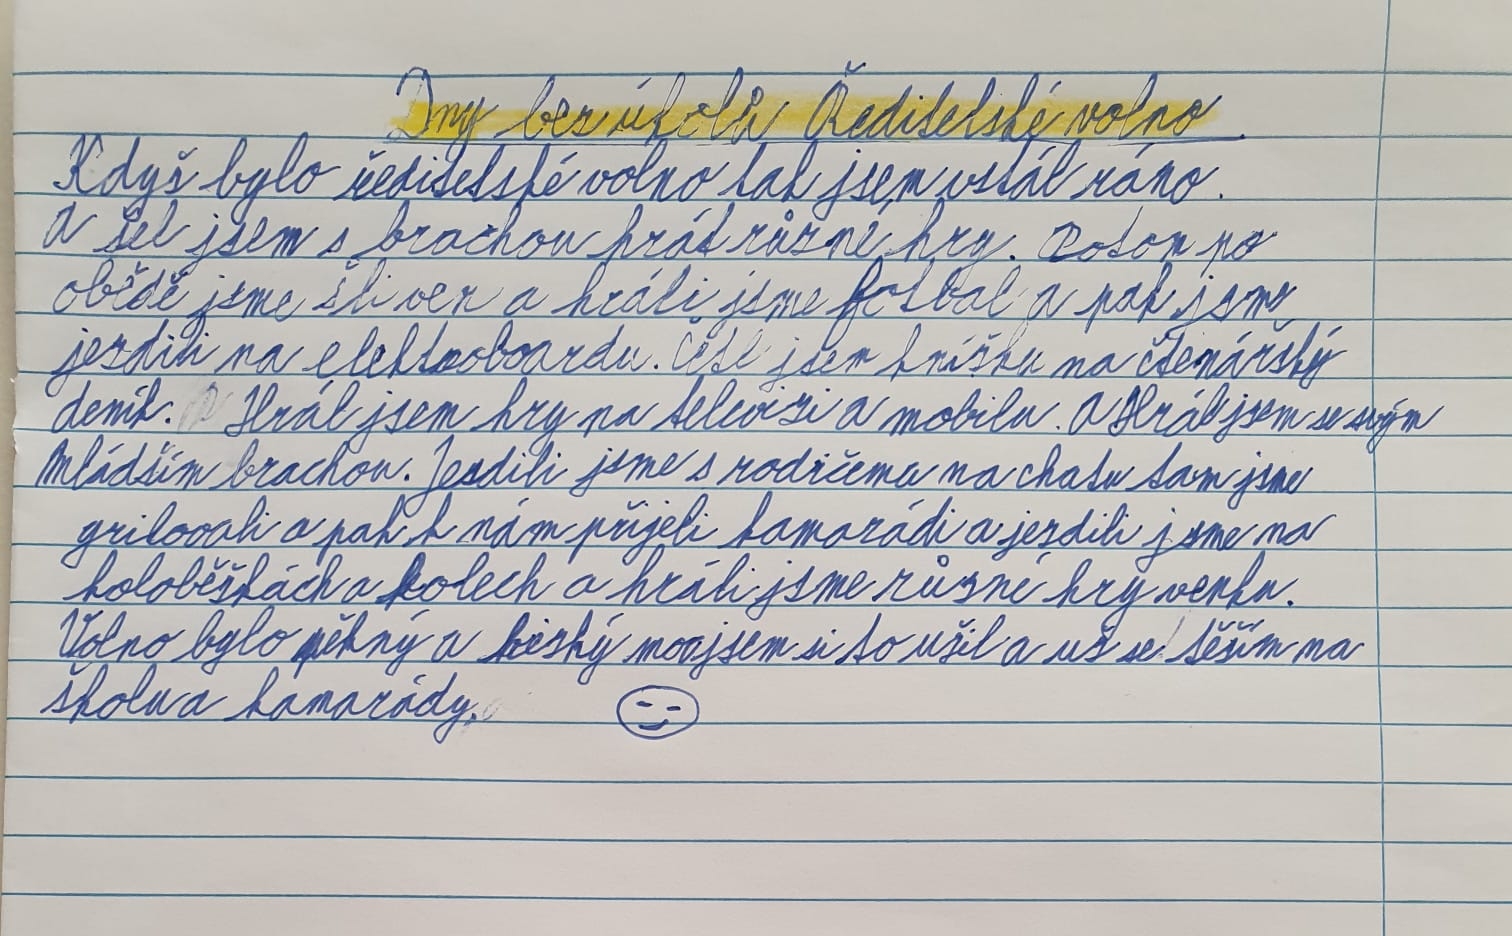 Dny bez úkolů Ředitelské volno.
Když bylo ředitelské volno tak jsem vstál ráno.
A šel jsem s brachou hrát různé hry. Potom po
obědě jsme šli ven a hráli jsme fotbal a pak jsme
jezdili na elektooboardu. Četl jsem knížku na čtenářský
deník. Hrál jsem hry na televizi a mobilu. A Hrál jsem se svým
mládším brachou. Jezdili jsme s rodičema na chatu tam jsme
grilovali a pak k nám přijeli kamarádi a jezdili jsme na
koloběžkách a kolech a hráli jsme různé hry venku.
Volno bylo pěkný a hezký moc jsem si to užil a už se těším na
školu a kamarády.